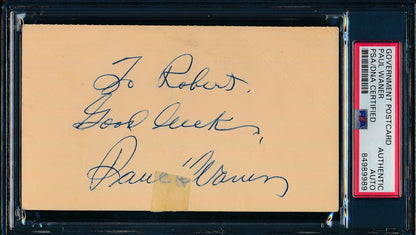 To Robert.
Good luck,
Paul Waner
GOVERNMENT POSTCARD
PAUL WANER
PSA/DNA CERTIFIED
AUTHENTIC
AUTO
84989989
PSA